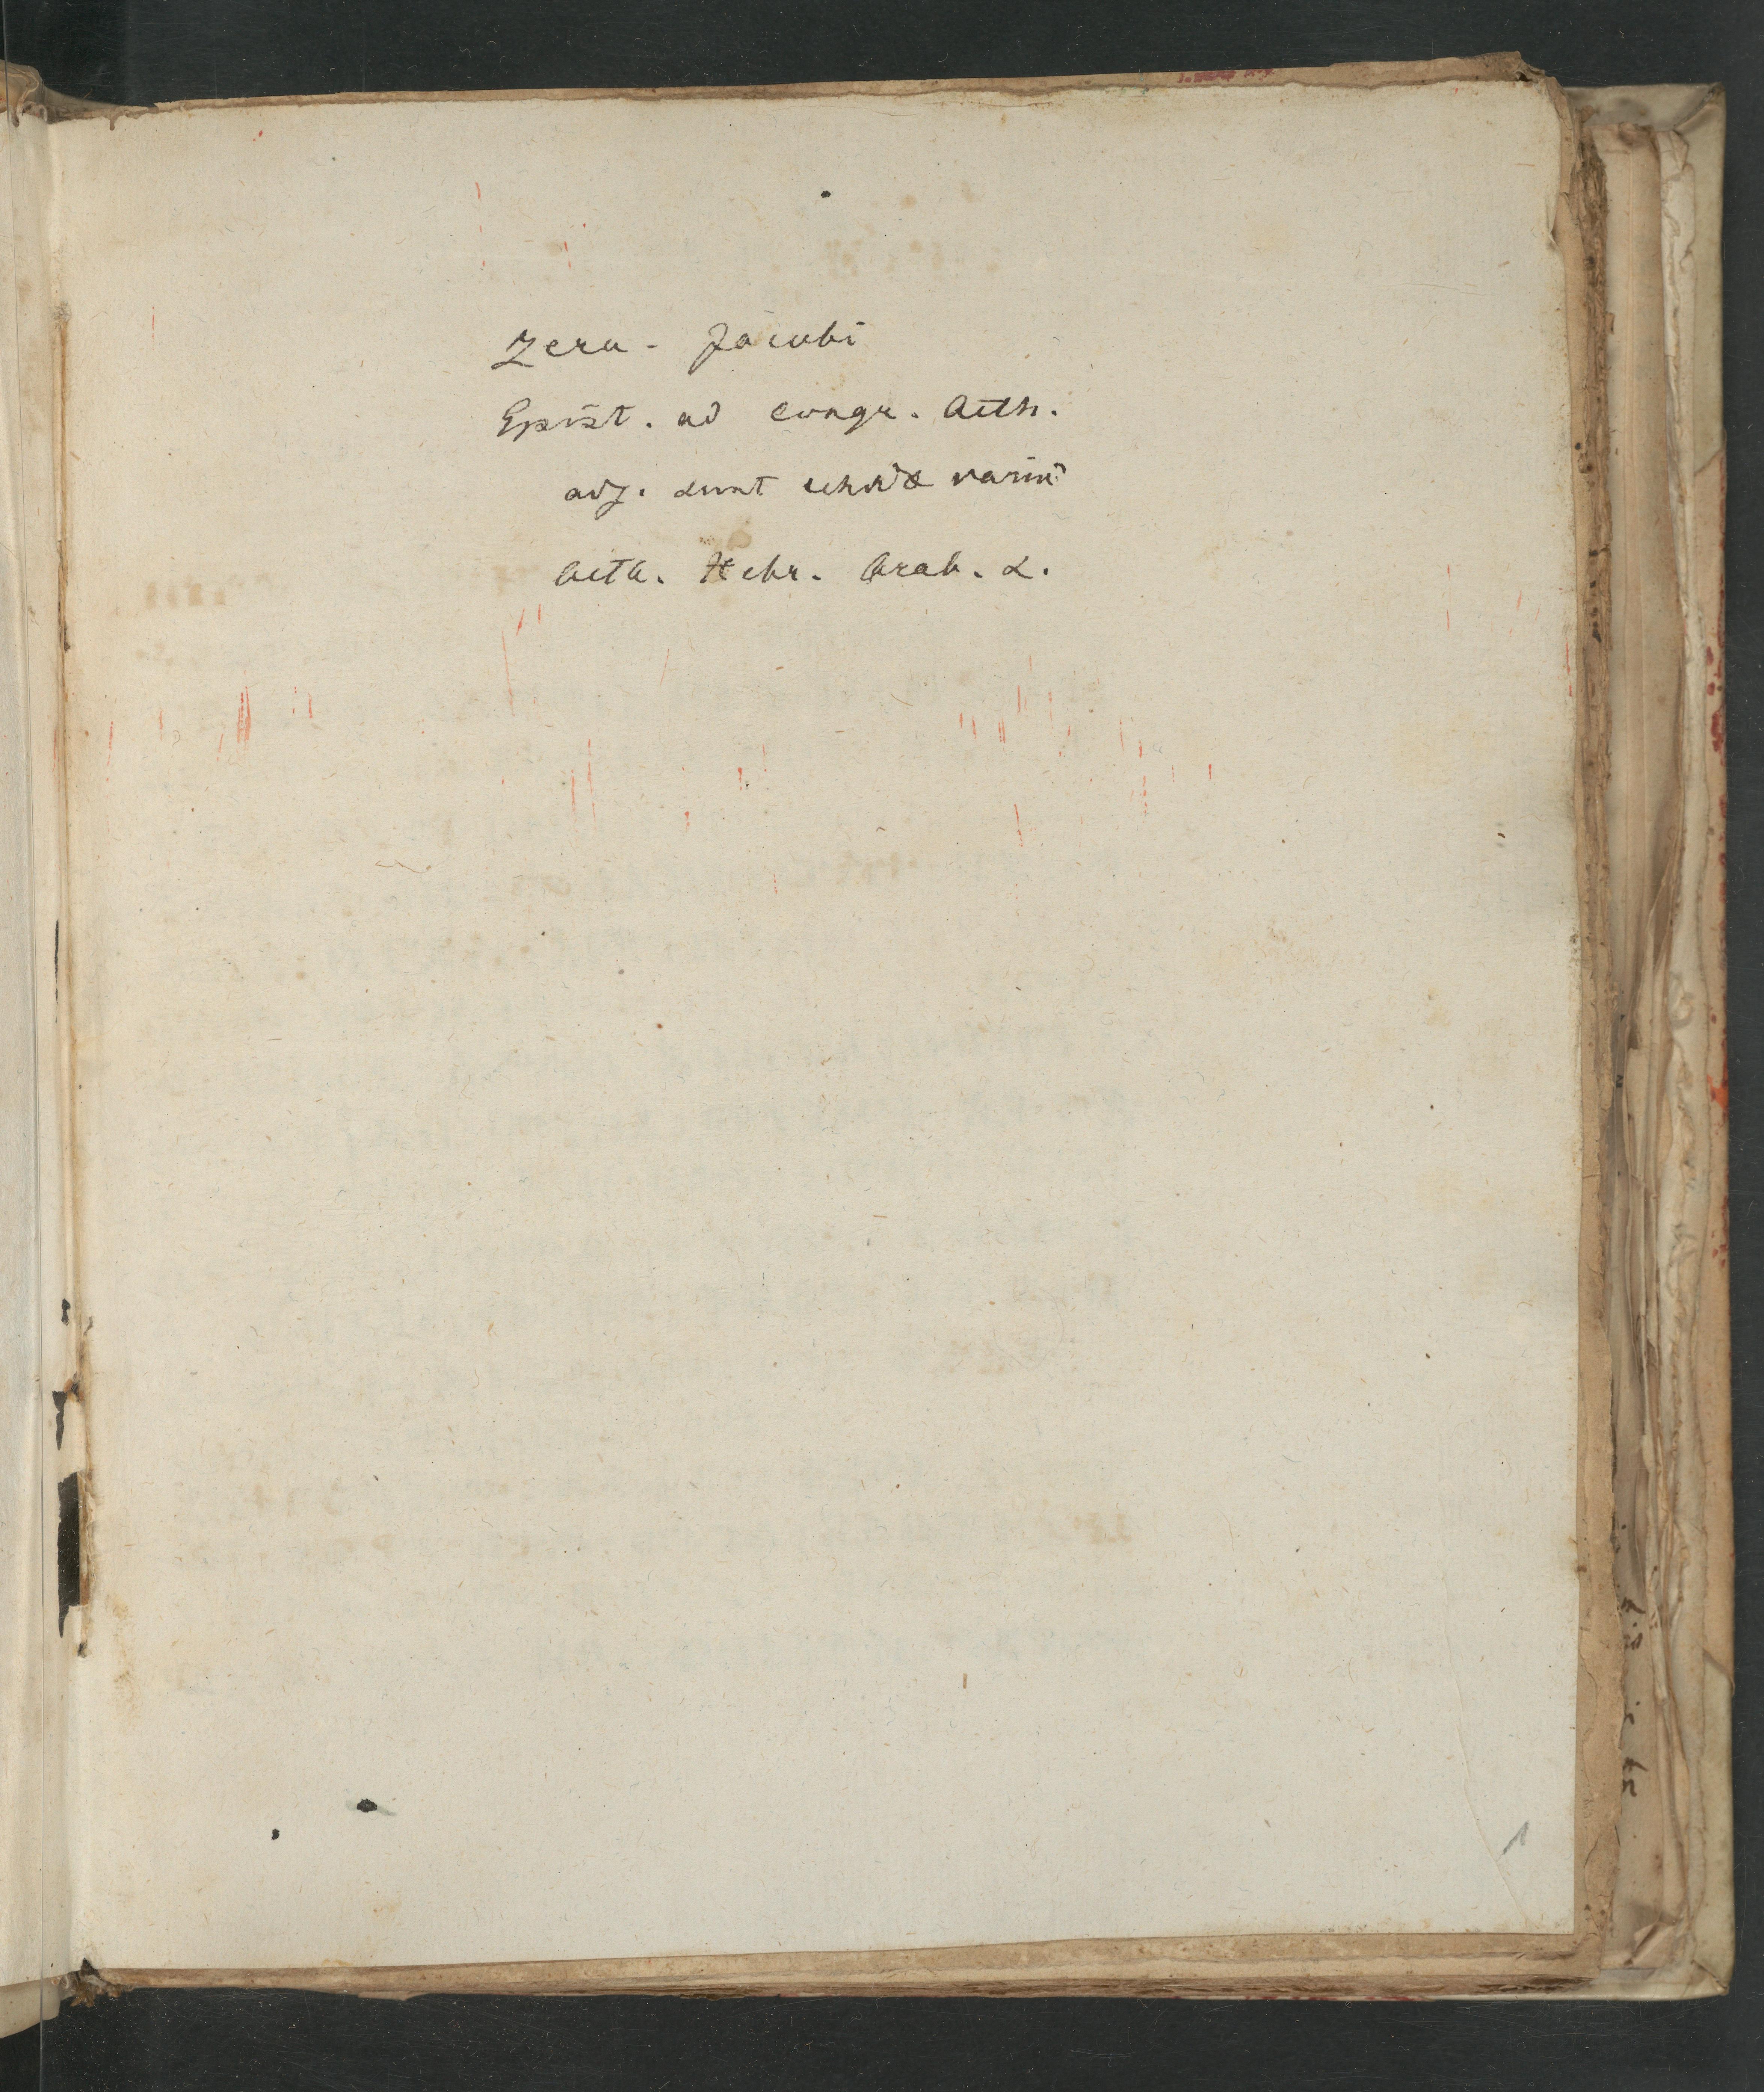 Zera - Jacobi
Epist. ad congr. Aeth.
adj. sunt schedae variae
Aeth. Hebr. Arab. L.
1